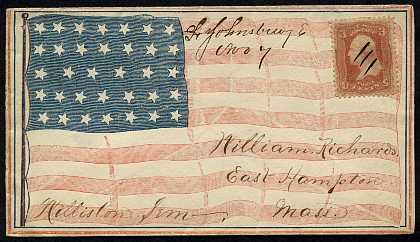 St Johnsbury
Nov 7
William Richards
East Hampton
Williston Sem
Mass.